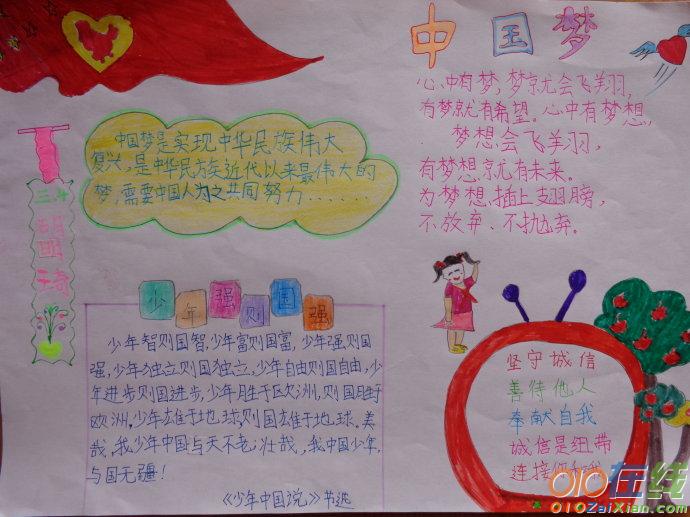 中国梦
心中有梦,梦就会飞羊羽,
有梦就有希望。心中有梦想,
梦想会飞羊羽,
有梦想就有未来。
为梦想插上翅膀,
不放弃、不抛弃。
中国梦是实现中华民族伟大
复兴,是中华民族近代以来最伟大的
梦,需要中国人为之共同努力......
三.4
胡
琦
少年强则国强
少年智则国智,少年富则国富,少年强则国
强,少年独立则国独立,少年自由则国自由,少
年进步则国进步,少年胜于欧洲,则国胜于
欧洲,少年雄于地球,则国雄于地球。美
哉,我少年中国与天不老;壮哉,我中国少年,
与国无疆!
《少年中国说》节选
坚守诚信
善待他人
奉献自我
诚信是纽带
连接你和我
010在线
010ZaiXian.com